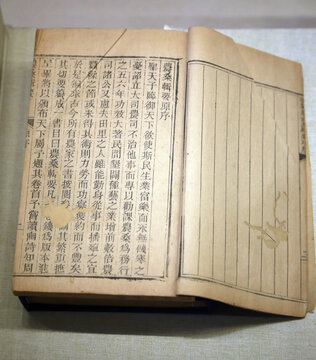 農桑輯要原序
聖天子臨御天下欲使斯民生業富樂而永無饑寒之
憂詔立大司農司不治他事而專以勸課農桑為務行
之五六年功效大著民間墾闢種藝之業增前數倍農
司諸公又慮夫田里之人雖能勤身從事而播殖之宜
蠶繰之節或未得其術則力勞而功寡獲約而不豐矣
於是徧求古今所有農家之書披閱其繁重摭
其切要纂成一書目曰農桑輯要凡鏤為版本進
呈畢將以頒布天下屬予題其卷首予嘗讀豳詩知周